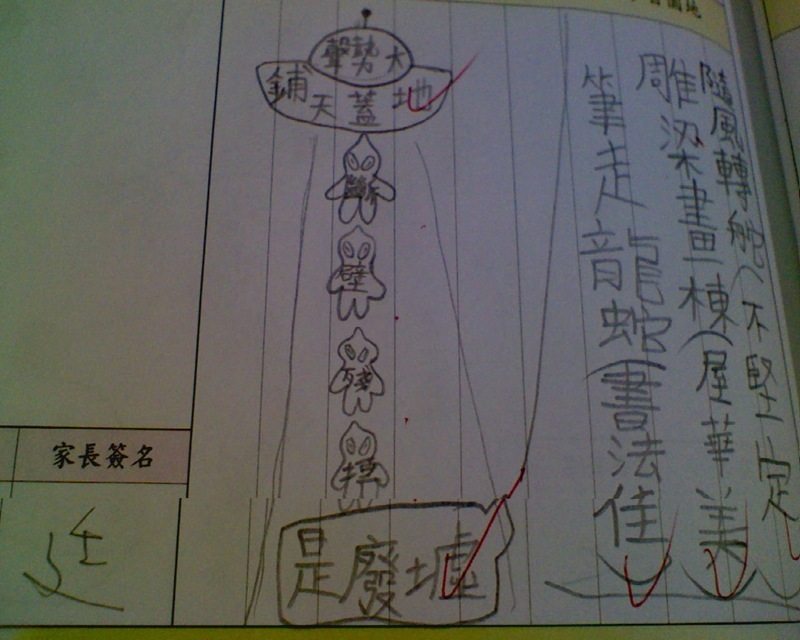 園地
隨風轉舵(不堅定
雕梁畫棟(屋華美)
筆走龍蛇(書法佳)
聲勢大
鋪天蓋地
斷
壁
殘
是廢墟
家長簽名